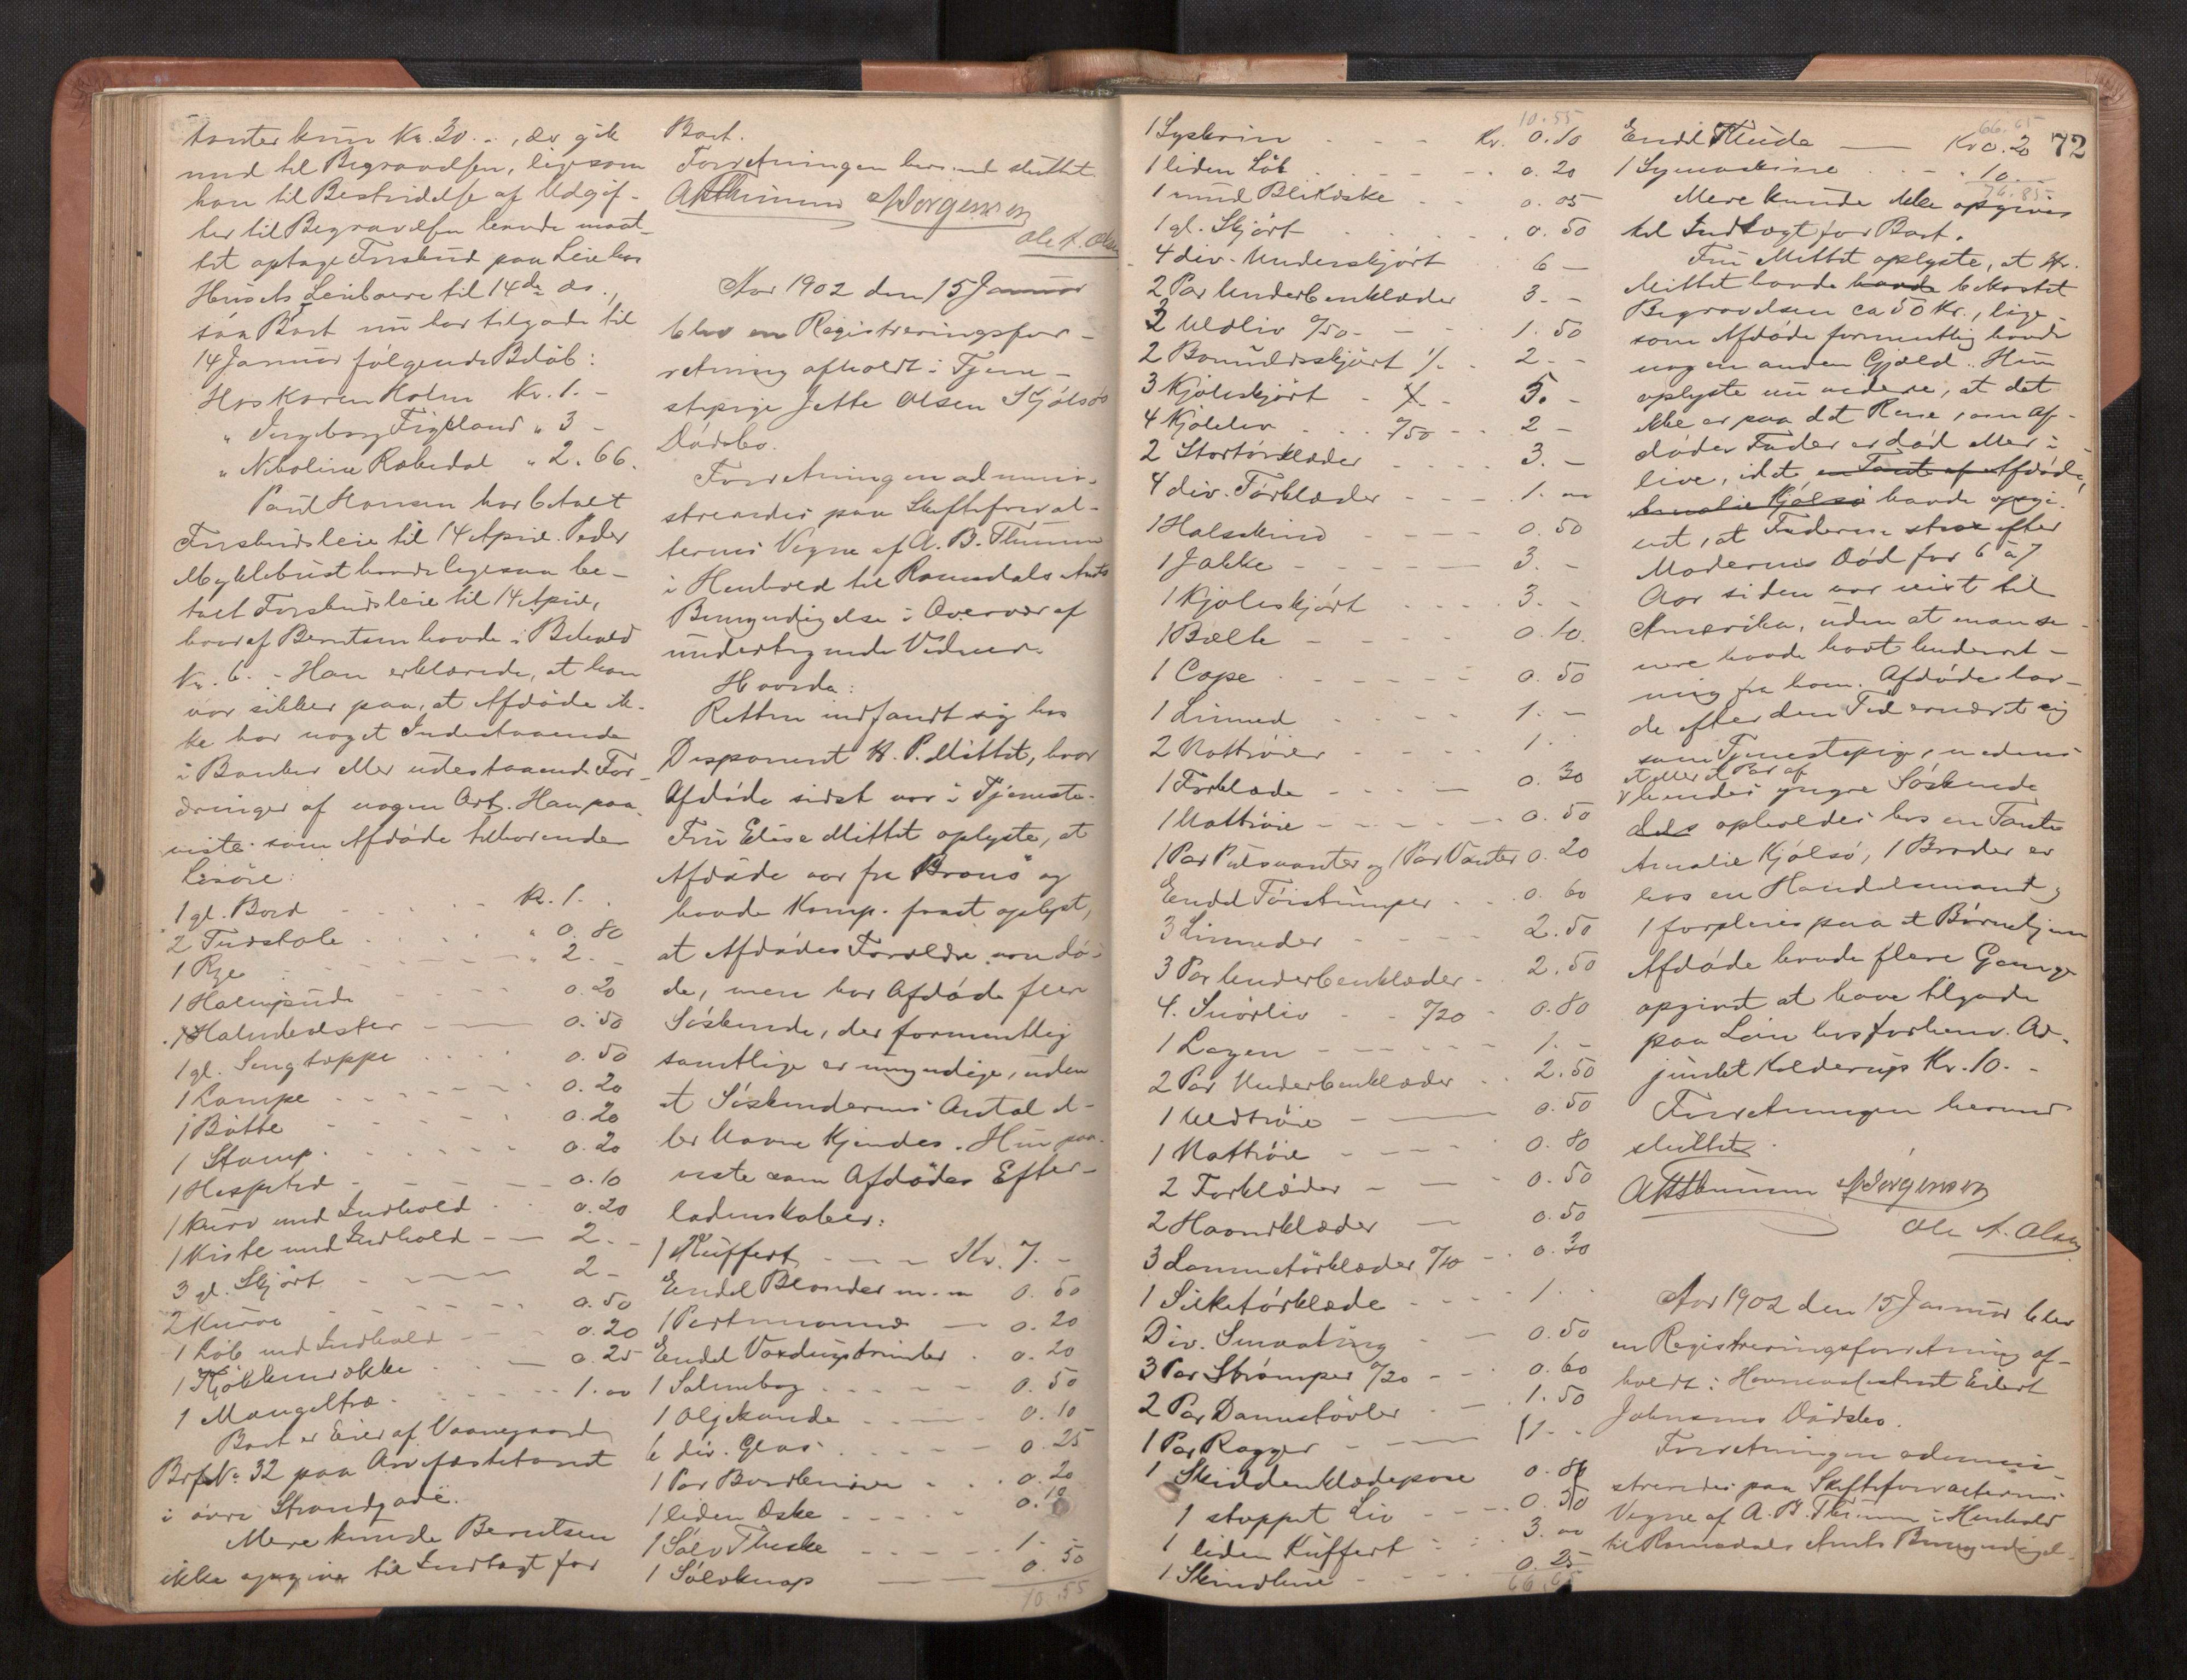 tanter kun Kr. 30.–, der gik
med til Begravelsen, ligesom
han til Bestridelse af Udgif-
ter til Begravelsen havde maat-
tet optage Forskud paa Leie hos
Husets Leieboere til 14de ds.,
saa Boet nu har tilgode til
14 Januar følgende Beløb:
Hos Karen Holm Kr. 1.–
" Ingeborg " 3 –
" Nikoline " 2.66.
Paul Hansen har betalt
Forskudsleie til 14 April. Peder
Myklebust havde ligesaa be-
talt Forskudsleie til 14 April,
hvoraf Berntsen havde i Behold
Kr. 6.– Han erklærede, at han
var sikker paa, at Afdøde ik-
ke har noget Indestaaende
i Banker eller udestaaende For-
dringer af nogen Art. Han paa-
viste som Afdøde tilhørende
Løsøre:
1 gl. Bord Kr. 1.
2 Træstole " 0.80
1 Rye " 2.–
1 Halmpude 0.20
1 Halmmadrass 0.50
1 gl. Sengtæppe 0.50
1 Lampe 0.20
1 Bøtte 0.20
1 Stamp 0.20
1 Hespetræ 0.10
1 Kurv med Indhold 0.20
1 Kiste med Indhold 2.–
3 gl. Skjørt 2 –
2 Kurve 0.50
1 Løb med Indhold 0.20
1 Kjøkkenrække 0.25
1 Mangeltræ 1.00
Boet er Eier af Vaanegaard
BrfNo 32 paa Arvefæstetomt
i øvre Strandgade.
Mere kunde Berntsen
ikke opgive til Indtægt for
Boet.
Forretningen hermed sluttet.
ABThimm Jørgensen
Ole A. Olsen
Aar 1902 den 15 Januar
blev en Registreringsfor-
retning afholdt i Tjene-
stepige Jette Olsen Kjølsøs
Dødsbo.
Forretningen admini-
streredes paa Skifteforval-
terens Vegne af A. B. Thimm
i Henhold til Romsdals Amts
Bemyndigelse i Overvær af
undertegnede Vidner.
Hvorda:
Retten indfandt sig hos
Disponent H. P. Mittet, hvor
Afdøde sidst var i Tjeneste.
Fru Elise Mittet oplyste, at
Afdøde var fra Bronø og
havde Komp. faaet oplyst,
at Afdødes Forældre var dø-
de, men har Afdøde flere
Søskende, der formentlig
samtlige er umyndige, uden
at Søskendernes Antal el-
ler Navne kjendes. Hun paa-
viste som Afdødes Efter-
ladenskaber:
1 Kuffert Kr. 7.–
Endel Blonder m.m 0.50
1 Portmonnæ 0.20
Endel Voxdugstrimler 0.20
1 Salmebog 0.50
1 Oljekande 0.10
6 div. Glas 0.25
1 Par Bordkniver 0.20
1 liden Æske 0.10
1 Sølv Theske 1.–
1 Sølvknap 0.50
10.55
10.55
1 Syskrin Kr. 0.10
1 liden Løb 0.20
1 rund Blikæske 0.05
1 gl. Skjørt 0.50
4 div. Underskjørt 6 –
2 Par Underbenklæder 3.–
3 Uldliv 0/50 1.50
2 Bomuldsskjørt 1/- 2 –
3 Kjoleskjørt 5.–
4 Kjoleliv 0/50 2 –
2 Stortørklæder 3.–
4 div. Tørklæder 1.00
1 Halsskind 0.50
1 Jakke 3.–
1 Kjoleskjørt 3.–
1 Bælte 0.10.
1 Cape 0.50
1 Linned 1.–
2 Nattrøier 1.
1 Forklæde 0.30
1 Nattrøie 0.50
1 Par Pulsvanter og 1 Par Vanter 0.20
Endel Føistrumper 0.60
3 Linneder 2.50
3 Par Underbenklæder 2.50
4. Snørliv 0/20 0.80
1 Lagen 1.–
2 Par Underbenklæder 2.50
1 Uldtrøie 0.50
1 Nattrøie 0.80
2 Forklæder 0.50
2 Haandklæder 0.50
3 Lommetørklæder 0/10 0.30
1 Silketørklæde 1.
Div. Smaating 0.50
3 Par Strømper 0/20 0.60
2 Par Damestøvler 1.50
1 Par Ragger 1.–
1 Skiddenklædepose 0.80
1 stoppet Liv 0.50
1 liden Kuffert 3.00
1 Skindhue 0.25
66.65
72
66.65
Endel Klude Kr 0.20
1 Symaskine 10.–
76.85
Mere kunde ikke opgives
til Indtægt for Boet.
Fru Mittet oplyste, at Hr.
Mittet havde havde bekostet
Begravelsen ca 50 Kr., lige-
som Afdøde formentlig havde
nogen anden Gjæld. Hun
oplyste nu videre, at det
ikke er paa det Rene, om Af-
dødes Fader er død eller i
live, idet en Tante af Afdøde,
Amalie Kjølsø havde opgi-
vet, at Faderen strax efter
Moderens Død for 6 à 7
Aar siden var reist til
Amerika, uden at man se-
nere havde havt Underret-
ning fra ham. Afdøde hav-
de efter den Tid ernæret sig
som Tjenestepige, medens
et eller et Par af
hendes yngre Søskende
dels opholdes hos en Tante
Amalie Kjølsø, 1 Broder er
hos en Handelsmand og
1 forpleies paa et Børnehjem
Afdøde havde flere Gange
opgivet at have tilgode
paa Løn hos forhenv. Ad-
junkt Kolderups Kr. 10.–
Forretningen hermed
sluttet.
ABThimm Jørgensen
Ole A. Olsen
Aar 1902 den 15 Januar blev
en Registreringsforretning af-
holdt i Havneassistent Eilert
Johnsens Dødsbo.
Forretningen admini-
streredes paa Skifteforvalterens
Vegne af A. B. Thimm i Henhold
til Romsdals Amts Bemyndigel-